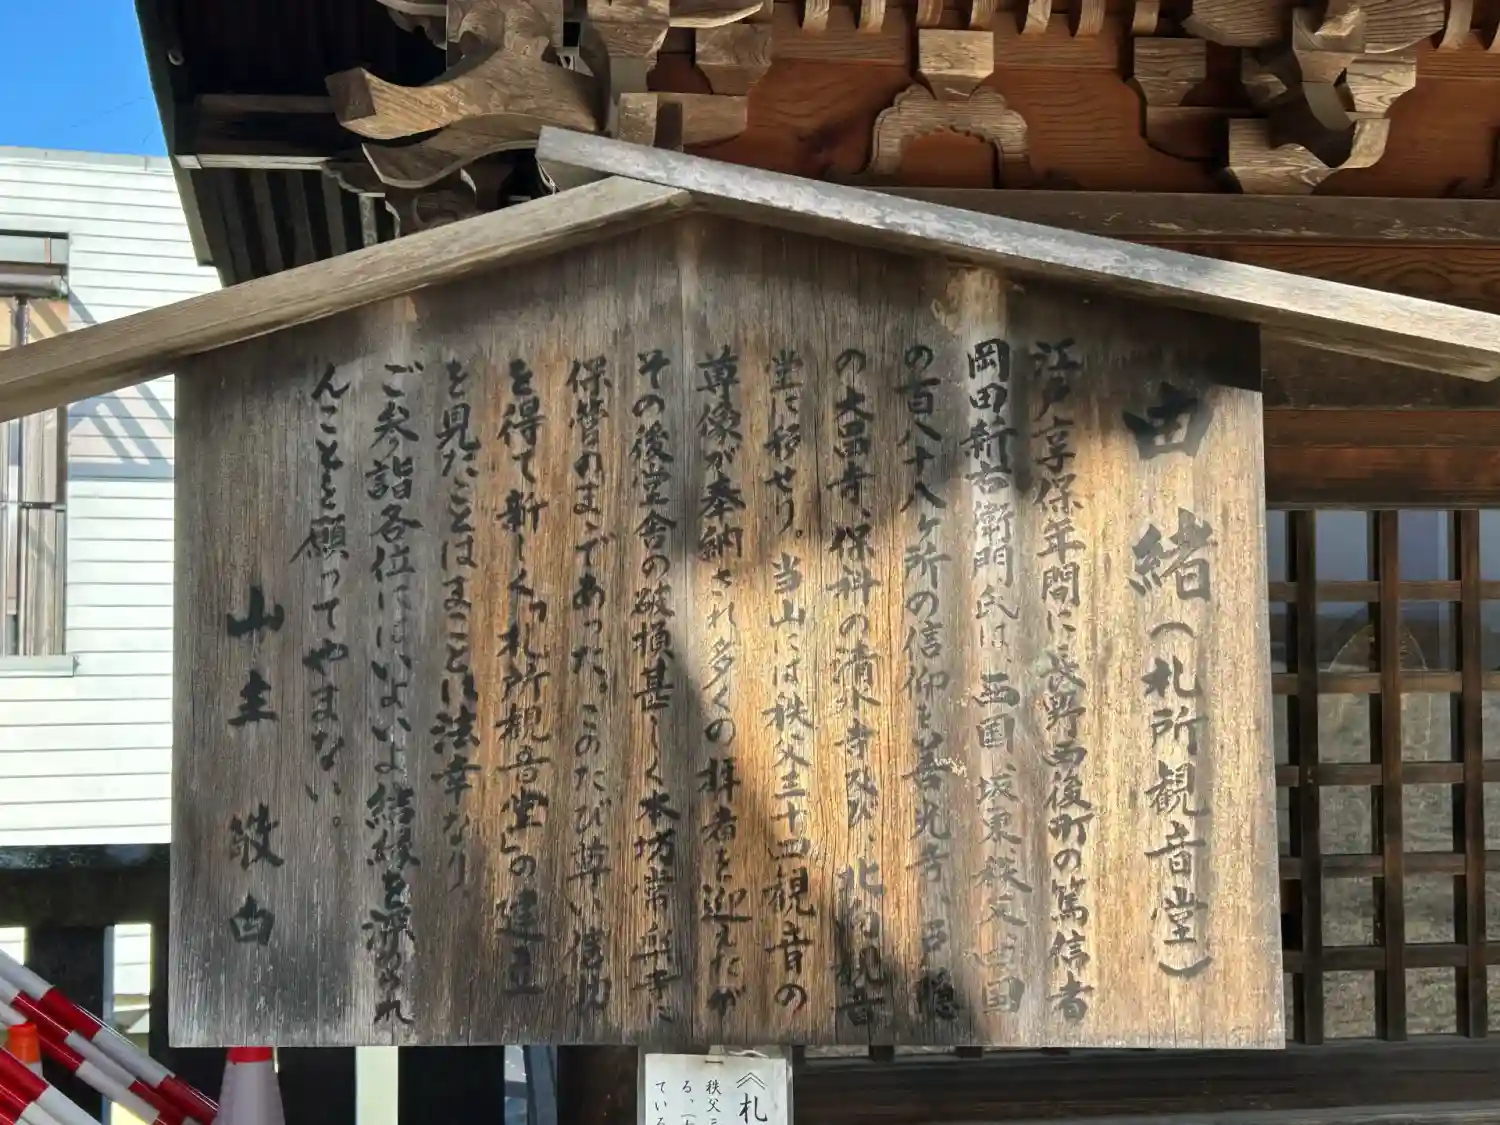 由緒(札所観音堂)
江戸享保年間に長野西後町の篤信者
岡田新右衛門氏は、西国、坂東秩父四国
の百八十八ヶ所の信仰を善光寺、戸隠
の大昌寺、保科の清水寺及び、北向観音
堂に移せり。当山には秩父三十四観音の
尊像が奉納され多くの拝者を迎えたが
その後堂舎の破損甚しく本坊常楽寺に
保管のまゝであった。このたび尊い信助
を得て新しく「札所観音堂」の建立
を見たことはまことに法幸なり。
ご参詣各位にはいよいよ結縁を深められ
んことを願ってやまない。
山主敬白
《札
秩父三
る。
ている